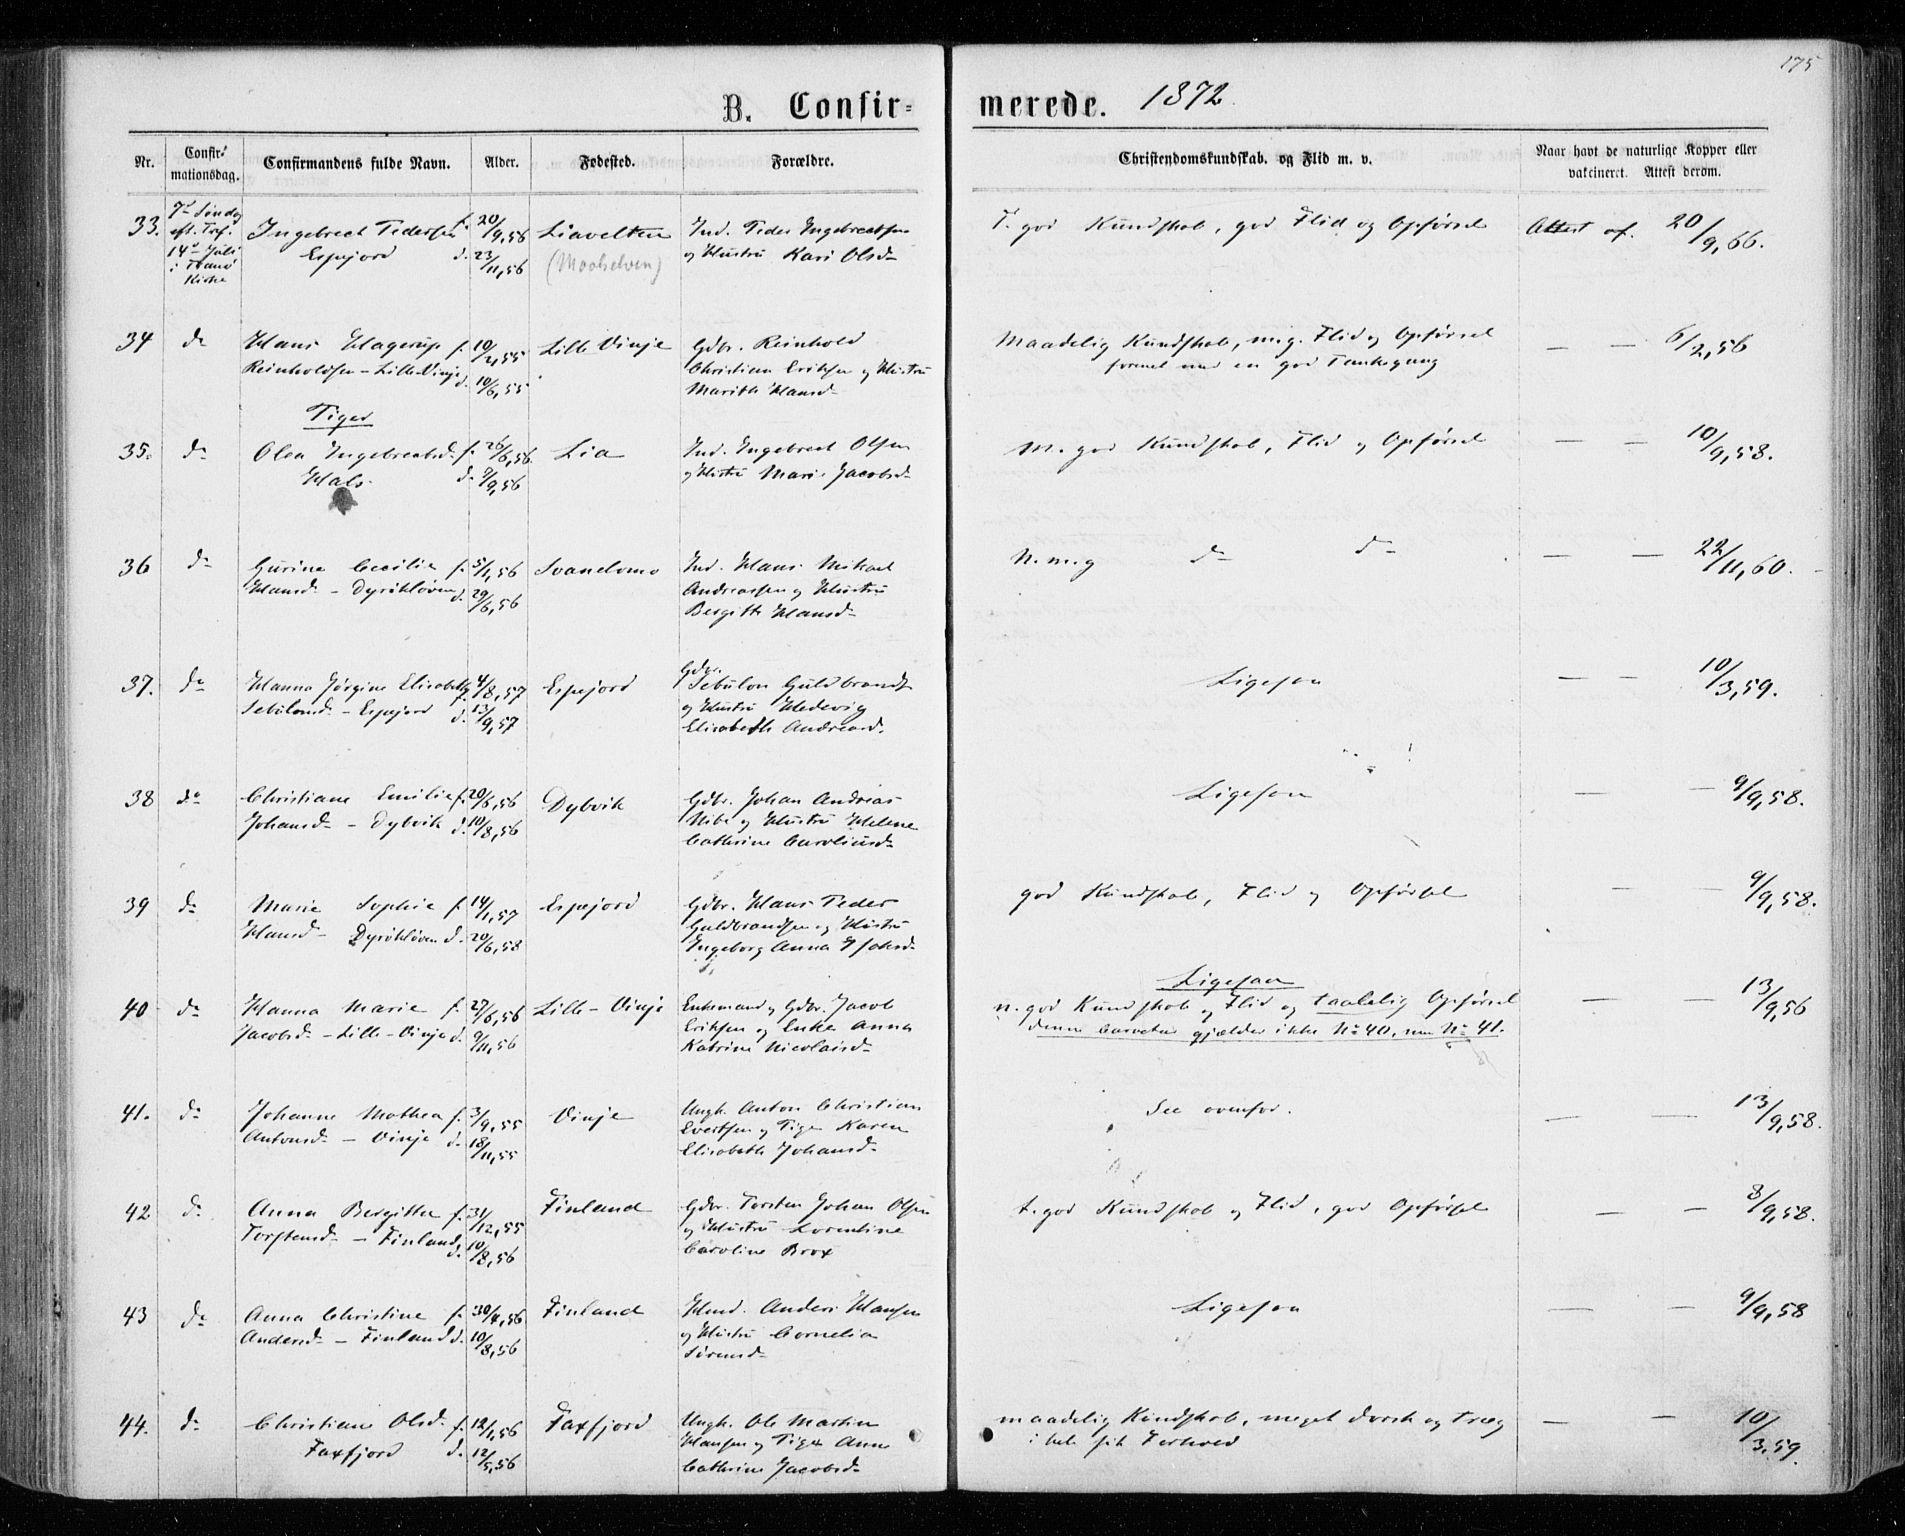 175
B. Confir-
merede. 1872.
Nr.
Confir-
mationsdag.
Confirmandens fulde Navn.
Alder.
Fødested.
Forældre.
Christendomskundskab. og Flid m. v.
Naar havt de naturlige Kopper eller
vakcineret. Attest derom.
33.
7de Søndag
eft. Tref.
14de Juli
i Tranø
Kirke
Ingebrect Pedersen f. 20/9,56
Espejord d. 23/11,56
Liavelten
(Maalselven)
Ind. Peder Ingebrectsen
og Hustru Kari Olsd.
T. god Kundskab, god Flid og Opførsel
Attest af. 20/9,66.
34 do
Hans Hagerup f. 10/2,55
Reinholdsen - Lille-Vinje d. 10/6,55
Lille Vinje
Gdbr. Reinhold
Christian Eriksen og Hustru
Marith Hansd.
Maadelig Kundskab, mg. Flid og Opførsel
forenet med en god Tankegang
— — 6/2,56
Piger
35. do
Olea Ingebrectsd. f. 26/6,56.
Hals d. 9/9,56
Lia
Ind. Ingebrect Olsen
og Hustru Mari Jacobsd.
M. god Kundskab, Flid og Opførsel
— — 10/9,58.
36 do
Gurine Cecilie f. 5/1,56
Hansd. - Dyrikløven d. 29/6,56
Svanelvmo
Ind. Hans Mikael
Andreassen og Hustru
Bergitte Hansd.
N. m. g do do
— — 22/11,60.
37. do
Hanna Jørgine Elisabeth f. 4/8,57
Sebulonsd. - Espejord d. 13/9,57
Espejord
Gdbr.
Sebulon Guldbrands.
og Hustru Hedevig
Elisabeth Andreasd.
Ligesaa
— — 10/3,59.
38 do
Christiane Emilie f. 20/6,56
Johansd. - Dybvik d. 10/8,56
Dybvik
Gdbr. Johan Andreas
Nibe og Hustru Helene
Cathrine Caroliusd.
Ligesaa
— — 9/9,58.
39 do
Marie Sophie f. 14/1,57
Hansd. - Dyrikløven d. 20/6,58
Espejord
Gdbr. Hans Peder
Guldbrandsen og Hustru
Ingeborg Anna Johsd.
god Kundskab, Flid og Opførsel
— — 9/9,58.
40 do
Hanna Marie f. 27/6,56
Jacobsd. - Lille-Vinje d. 9/11,56
Lille-Vinje
Enkemand og Gdbr. Jacob
Eriksen og Enke Anna
Katrine Nicolaisd.
Ligesaa
n. god Kundskab og Flid og taalelig Opførsel
denne Caracter gjælder ikke No 40, men No 41.
— — 13/9,56
41. do
Johanne Mathea f. 3/9,55
Antonsd. - Vinje d. 18/11,55
Vinje
Ungk. Anton Christian
Evertsen og Pige Karen
Elisabeth Johansd.
See ovenfor.
— — 13/9,58.
42 do
Anna Bergitte f. 31/12,55
Torstensd. - Finland d. 10/8,56
Finland
Gdbr. Torsten Johan Olsen
og Hustru Lorentine
Caroline Brox
t. god Kundskab og Flid, god Opførsel
— — 8/9,58.
43 do
Anna Christine f. 30/4,56
Andersd. - Finland d. 10/8,56
Finland
Hmd. Anders Hansen
og Hustru Cornelia
Sørensd.
Ligesaa
— — 9/9,58
44. do
Christiane Olsd. f. 12/1,56
Faxfjord d. 12/5,56
Faxfjord
Ungk. Ole Martin
Hansen og Pige Anne
Cathrine Jacobsd.
maadelig Kundskab, meget dorsk og træg
i hele sit Forhold
— — 10/3,59.